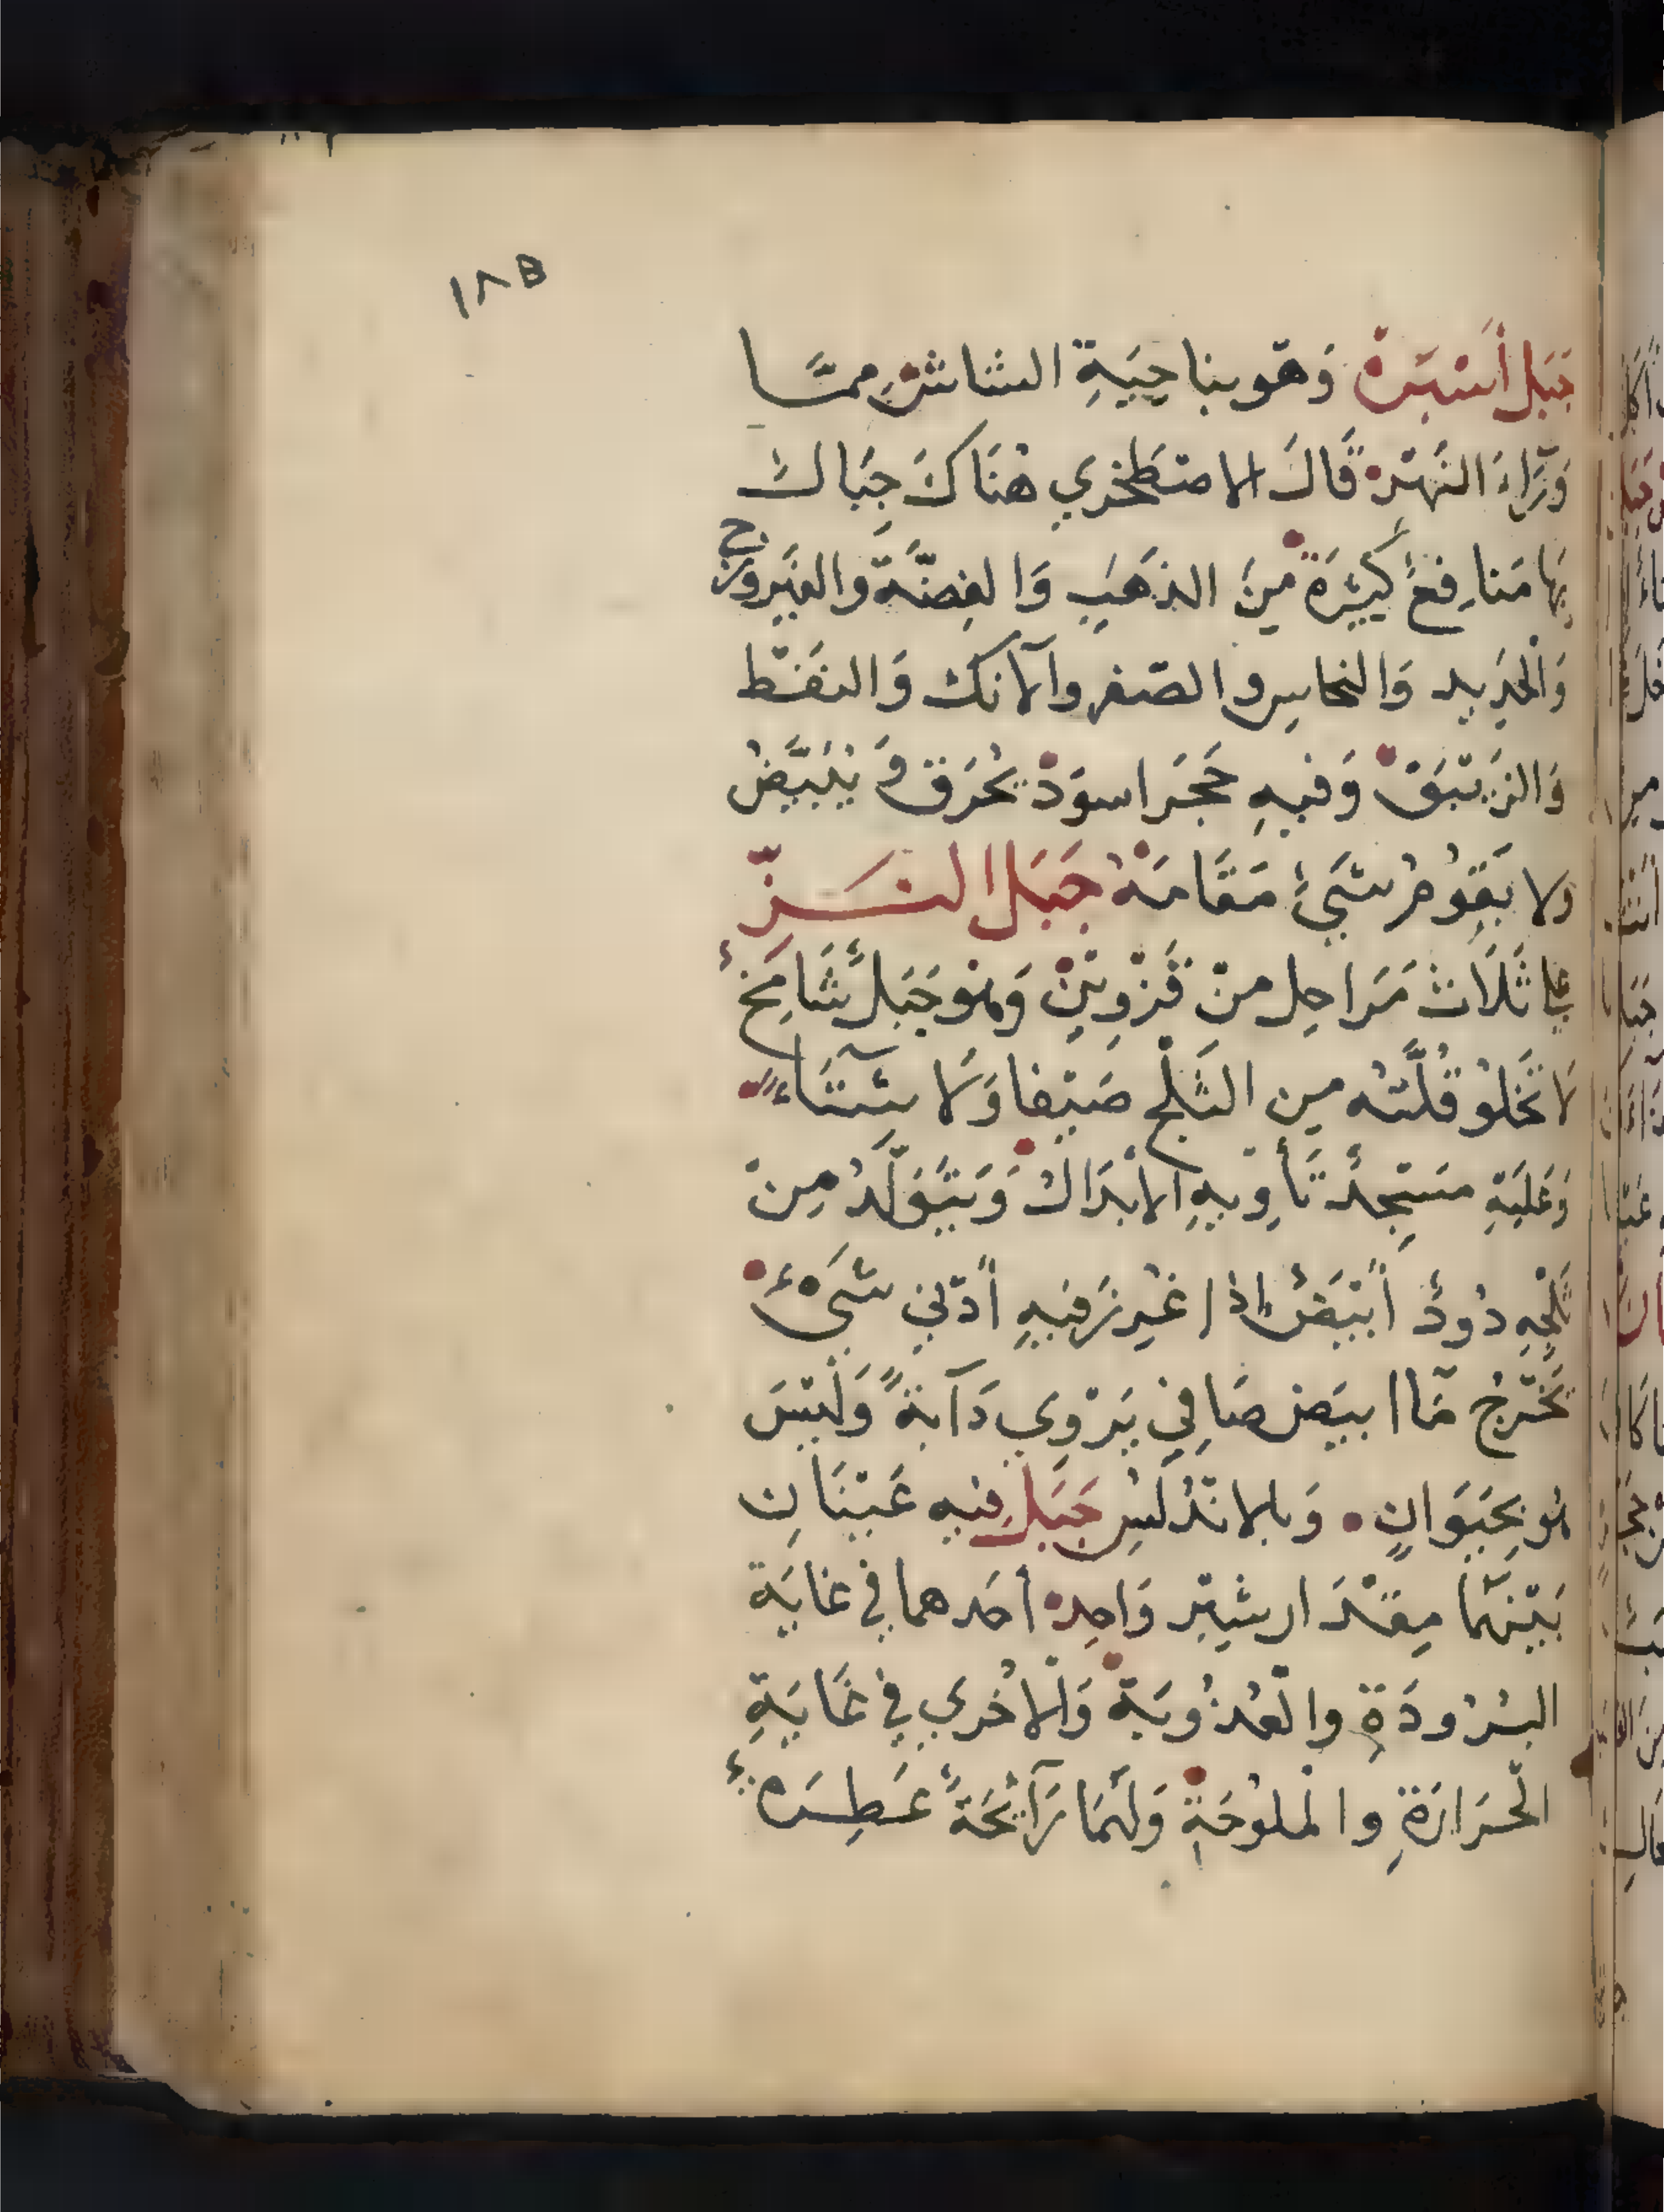 ١٨٥
جَبَل أَسْبَرة وَهو بناحِيَةِ الشاش ممّا
وَرَاءَ النَهر قَالَ الاصْطَخري هُنَاكَ جِبَال
بها مَنافِعٌ كَثِيرَة مِنَ الذهَبِ وَالفِضّةَ والفَيروزج
وَالحَدِيد وَالنحاسِ والصّفر والآنك وَالنفط
وَالزَيْبَق وَفيهِ حَجَر اسوَد يُحْرَق وَ يُبَيَّضُ
ولا يَقوُم شَيْءٌ مَقَامَهُ جَبَل النَزّ
على ثَلَاث مَرَاحِل منْ قَزْوِين وَهو جَبَلٌ شَامِخٌ
لَا تَخلو قُلَّتُه مِن الثَلْجِ صَيْفا وَلَا شِتَاءً
وَعَليَهِ مسَجِدٌ تَأوِيهِ الابْدَالُ وَيَتَوَلَّدُ مِنْ
ثَلْجِهِ دُودٌ أبْيَضٌ إذا غُرِز فيهِ أدْنى شَيْءٍ
يَخْرَج مَاا ابيَض صَافِي يَرْوي دَآبةً وَليْسَ
هُو بِحَيَوانٍ وَبالاندُلسِ جَبَل فيه عَيْنَانِ
بَيْنَهما مِقْدَار شِبْر وَاحِد احَدهما في غايَة
البُرُودَةِ والْعُذُوبَة وَالاخُرى في غَايَةِ
الْحَرَارَةِ والْملوُحَةِ وَلهمَا رَآئِحَةً عَطِرَهٌ